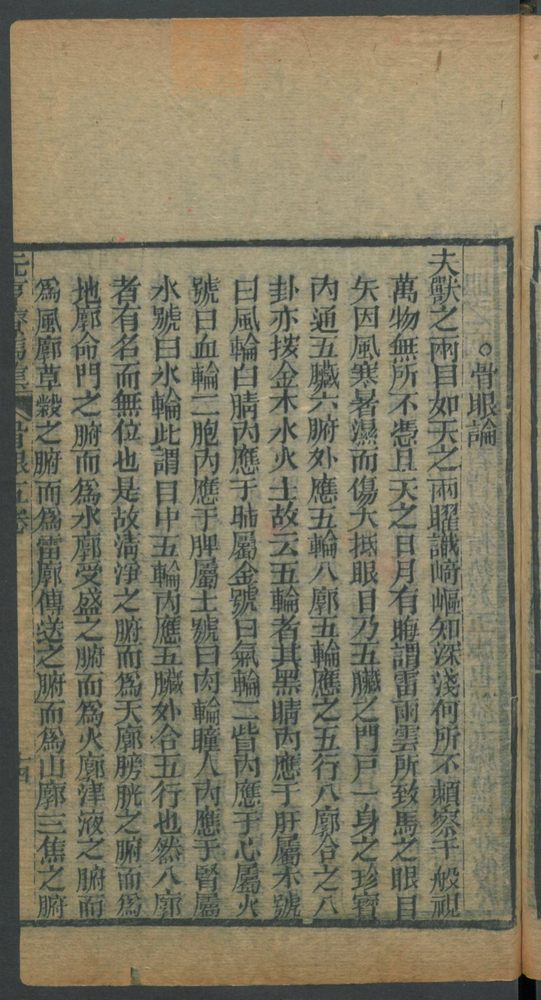 骨眼論
夫獸之兩目如天之兩曜識﨑嶇知深淺何所不賴察千般視
萬物無所不憑且天之日月有晦謂雷雨雲所致馬之眼目
矢因風寒暑濕而傷大抵眼目乃五臟之門戸一身之珍寶
内通五臟六腑外應五輪八廓五輪應之五行八廓合之八
卦亦按金木水火土故云五輪者其黑睛内應于肝屬木號
曰風輪白睛内應于肺屬金號曰氣輪二眥内應于心屬火
號曰血輪二胞内應于脾屬土號曰肉輪瞳人内應于腎屬
水號曰水輪此謂目中五輪内應五臟外合五行也然八廓
者有名而無位也是故清淨之腑而爲天廓膀胱之腑而爲
地廓命門之腑而爲水廓受盛之腑而爲火廓津液之腑而
爲風廓草穀之腑而爲雷廓傳送之腑而爲山廓三焦之腑
元亨療馬集 骨眼五卷 十四